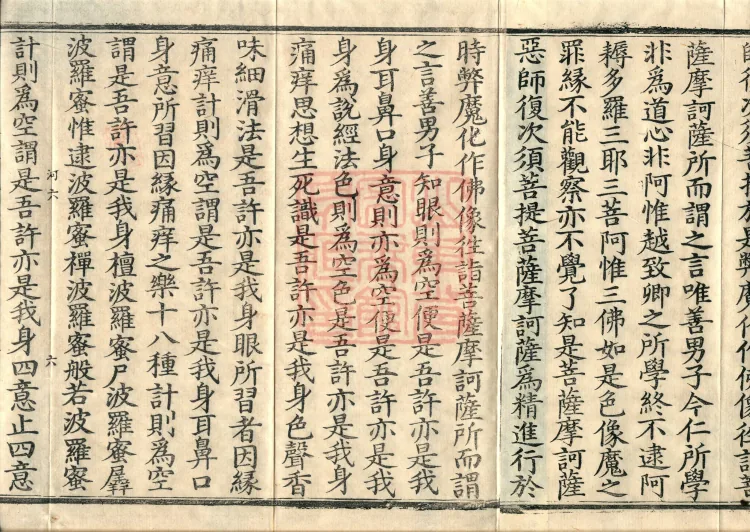 薩摩訶薩所而謂之言唯善男子今仁所學
非為道心非阿惟越致卿之所學終不逮阿
耨多羅三耶三菩阿惟三佛如是色像魔之
罪緣不能觀察亦不覺了知是菩薩摩訶薩
惡師復次須菩提菩薩摩訶薩為精進行於
時弊魔化作佛像往詣菩薩摩訶薩所而謂
之言善男子知眼則為空便是吾許亦是我
身耳鼻口身意則亦為空便是吾許亦是我
身為說經法色則為空色是吾許亦是我身
痛痒思想生死識是吾許亦是我身色聲香
味細滑法是吾許亦是我身眼所習者因緣
痛痒計則為空謂是吾許亦是我身耳鼻口
身意所習因緣痛痒之樂十八種計則為空
謂是吾許亦是我身檀波羅蜜尸波羅蜜羼
河六 六
波羅蜜惟逮波羅蜜禪波羅蜜般若波羅蜜
計則為空謂是吾許亦是我身四意止四意